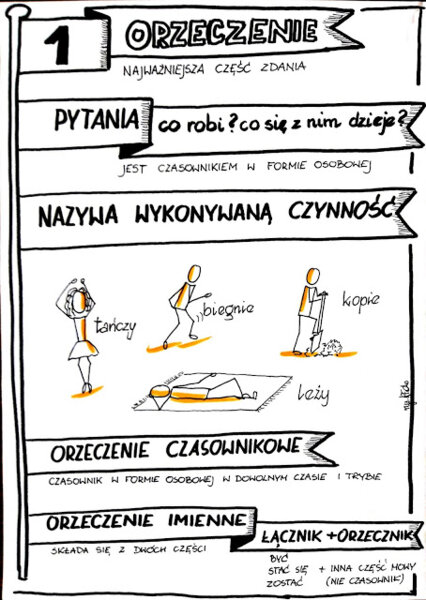 1
ORZECZENIE
NAJWAŻNIEJSZA CZĘŚĆ ZDANIA
PYTANIA co robi? co się z nim dzieje?
JEST CZASOWNIKIEM W FORMIE OSOBOWEJ
NAZYWA WYKONYWANĄ CZYNNOŚĆ
tańczy
biegnie
kopie
leży
ORZECZENIE CZASOWNIKOWE
CZASOWNIK W FORMIE OSOBOWEJ W DOWOLNYM CZASIE I TRYBIE
ORZECZENIE IMIENNE
SKŁADA SIĘ Z DWÓCH CZĘŚCI
ŁĄCZNIK + ORZECZNIK
BYĆ
STAĆ SIĘ + INNA CZĘŚĆ MOWY
ZOSTAĆ (NIE CZASOWNIK)